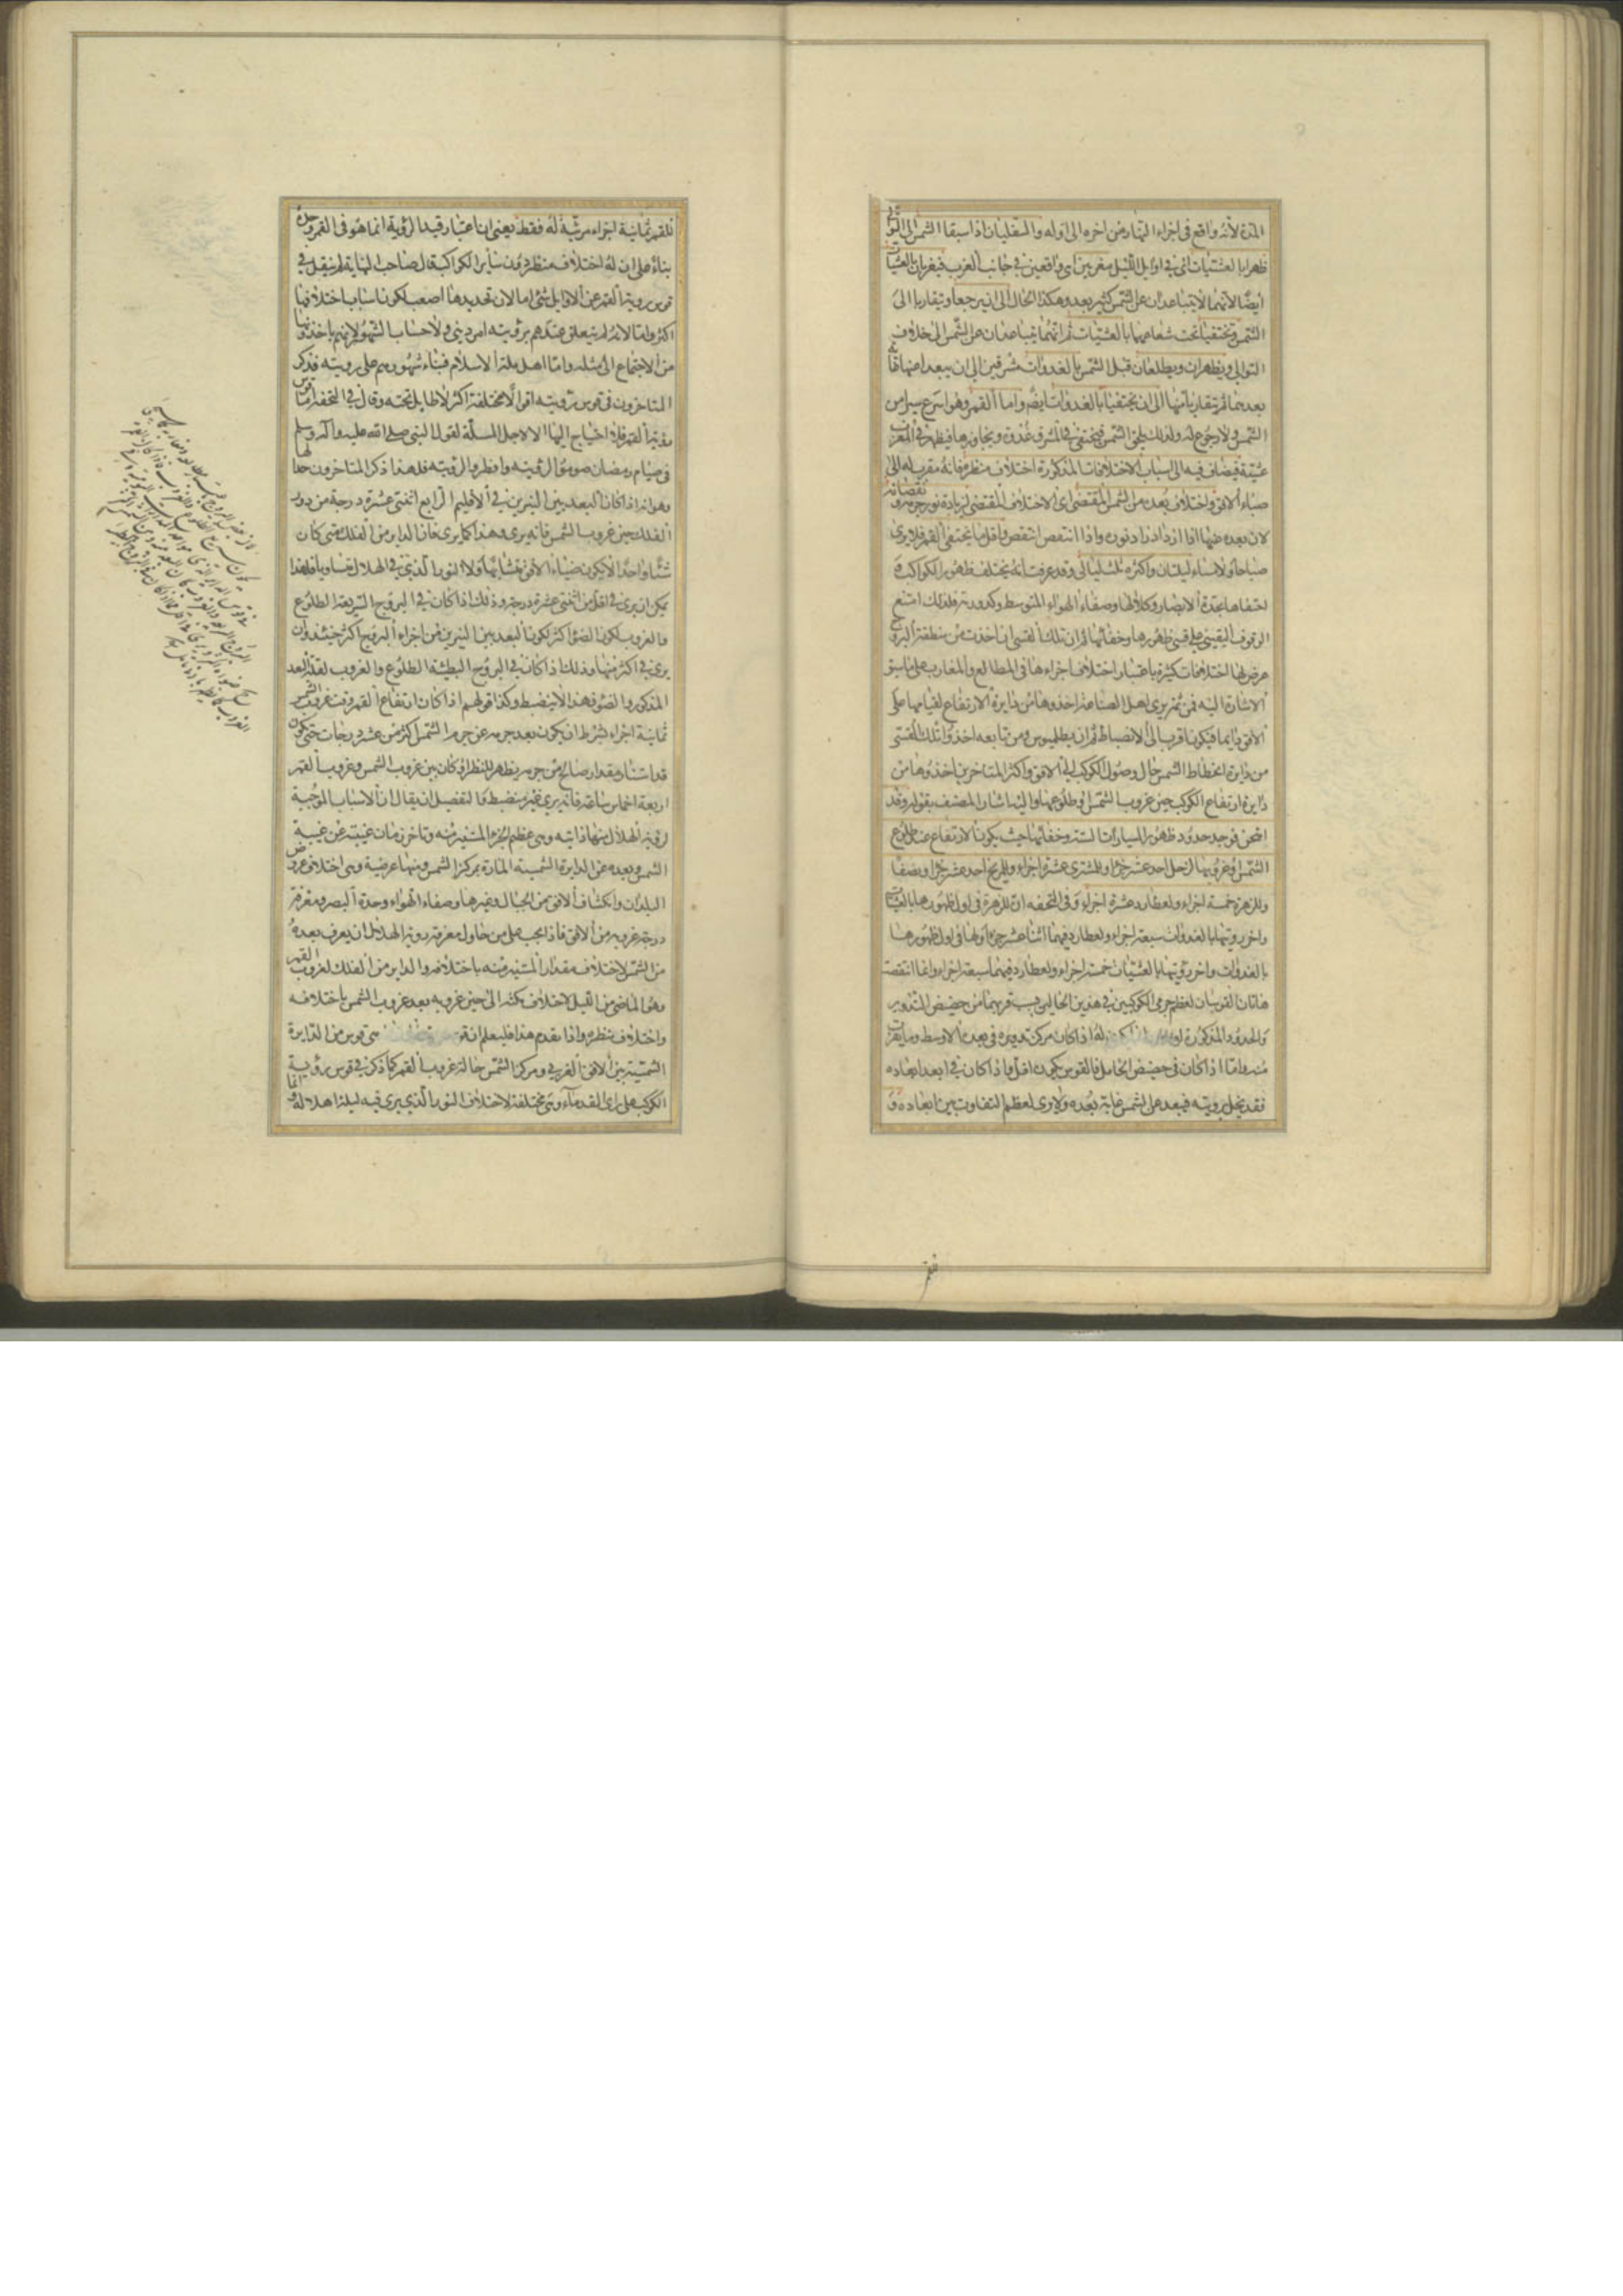 المدة لأنه واقع فى اجزاء النهار من اخره الى اوله والسفليان اذا سبقا الشمس الى التوالى
ظهرا بالعشيات اى فى اوايل الليل مغربين اى واقعين فى جانب الغرب فيغربان بالعشيات
ايضا لانهما لا يتباعدان عن الشمس كثير بعد وهكذا الحال الى ان يرجعا ويتقاربا الى
الشمس ويختفيا تحت شعاعهما بالعشيات ثم انهما يتباعدان عن الشمس الى خلاف
التوالى ويظهران ويطلعان قبل الشمس بالغدوات مشرقين الى ان يبعدا عنها غاية
بعدهما ثم يتقاربا منها الى ان يختفيا بالغدوات ايضا واما القمر وهو اسرع سيرا من
الشمس ولا رجوع له ولذلك يلحق الشمس فيختفى فى المشرق غدوة ويجاوزها فيظهر فى المغرب
عشية فيضاف فيه الى اسباب الاختلافات المذكورة اختلاف منظره فانه مقرب له الى
ضياء الافق واختلاف بعده من الشمس المقتضى اى الاختلاف المقتضى لزيادة نور جرمه ونقصانه
لان بعده عنها اذا ازداد ازداد نوره واذا انتقص انتقص واقل ما يختفى القمر فلا يرى
صباحا ولا مساء ليلتان واكثره ثلث ليالى وقد عرفت انه يختلف ظهور الكواكب و
اختفاءها بحدة الابصار وكلالها وصفاء الهواء المتوسط وكدورته فلذلك امتنع
الوقوف اليقينى على قسى ظهورها وخفائها ثم ان تلك القسى ان اخذت من منطقة البروج
عرض لها اختلافات كثيرة باعتبار اختلاف اجزاءها فى المطالع والمغارب على ما سبق
الاشارة اليه فمن ثم يرى اهل الصناعة اخذوها من دايرة الارتفاع لقيامها على
الافق دائما فيكون اقرب الى الانضباط ثم ان بطلميوس ومن تابعه اخذوا تلك القسى
من دايرة انحطاط الشمس حال وصول الكوكب الى الافق واكثر المتاخرين اخذوها من
دايرة ارتفاع الكوكب حين غروب الشمس او طلوعها واليه اشار المصنف بقوله وقد
امتحن فوجد حدود ظهور السيارات الستة وخفائها حيث يكون الارتفاع عند طلوع
الشمس او غروبها لزحل احد عشر جزءا وللمشترى عشرة اجزاء وللمريخ احد عشر جزءا ونصفا
وللزهرة خمسة اجزاء ولعطارد عشرة اجزاء وفى التحفه ان للزهرة فى اول ظهورها بالعشيات
واخر رؤيتها بالغدوات سبعة اجزاء ولعطارد فيهما اثنا عشر جزءا ولها فى اول ظهورها
بالغدوات واخر رؤيتها بالعشيات خمسة اجزاء ولعطارد فيهما سبعة اجزاء وانما انتقصت
هاتان القوسان لعظم جرمى الكوكبين فى هذين الحالين بسبب قربهما من حضيض التدوير
والحدود المذكورة له اذا كان مركز تدويره فى بعده الاوسط وما يقرب
منه واما اذا كان فى حضيض الحامل فالقوس يكون اقل واذا كان فى ابعد ابعاده
فقد يخل برؤيته فيبعد عن الشمس غاية بعده ولا يرى لعظم التفاوت بين ابعاده و
للقمر ثمانية اجزاء مرئية له فقط يعنى ان اعتبار قيد الرؤية انما هو فى القمر وحده
بناء على ان له اختلاف منظر دون سائر الكواكب قال صاحب النهاية لم ينقل فى
قوس روية القمر عن الاوايل شئ اما لان تحديدها اصعب لكون اسباب اختلافها
اكثر واما لانه لم يتعلق عندهم برؤيته امر دينى ولا حساب الشهور لانهم ياخذونها
من الاجتماع الى مثله واما اهل ملة الاسلام فبناء شهورهم على رويته فذكر
المتاخرون فى قوس رؤيته اقوالا مختلفة اكثرها لا طايل تحته وقال فى التحفه اما قوس
رؤية القمر فلا احتياج اليها الا لاجل المسلة لقول النبى صلى الله عليه واله وسلم
فى صيام رمضان صوموا لرؤيته وافطروا لرؤيته فلهذا ذكر المتاخرون حدا لها
وهو انه اذا كان البعد بين النيرين فى الاقليم الرابع اثنتى عشرة درجة من دور
الفلك حين غروب الشمس فانه يرى وهذا كما يرى فان الداير من الفلك متى كان
شيئا واحدا لا يكون ضياء الافق متشابها ولا النور الذى فى الهلال متساويا فلهذا
يمكن ان يرى فى اقل من اثنتى عشرة درجة وذلك اذا كان فى البروج السريعة الطلوع
والغروب لكون الضوء اكثر لكون البعد بين النيرين من اجزاء البروج اكثر حينئذ وان
يرى فى اكثر منها وذلك اذا كان فى البروج البطيئة الطلوع والغروب لقلة البعد
المذكور والضوء فهذا لا ينضبط وكذا قولهم اذا كان ارتفاع القمر وقت غروب الشمس
ثمانية اجزاء بشرط ان يكون بعد جرمه عن جرم الشمس اكثر من عشر درجات حتى يكون
قد استنار مقدار صالح من جرمه يظهر للنظر او كان بين غروب الشمس وغروب القمر
اربعة اخماس ساعة فانه يرى غير منضبط والتفصيل ان يقال ان الاسباب الموجبة
لرؤية الهلال منها ذاتية وهى عظم الجزء المستنير منه وتاخر زمان غيبته عن غيبة
الشمس وبعده عن الدايرة السمتية المارة بمركز الشمس ومنها عرضية وهى اختلاف عروض
البلدان وانكشاف الافق من الجبال وغيرها وصفاء الهواء وحدة البصر ومعرفة
درجة غروبه من الافق فاذا يجب على من حاول معرفة روية الهلال ان يعرف بعده
من الشمس لاختلاف مقدار المستنير منه باختلافه والداير من الفلك لغروب القمر
وهو الماضى من الليل لاختلاف مكثه الى حين غروبه بعد غروب الشمس باختلافه
واختلاف منظره واذا تقدم هذا فليعلم ان هى قوس من الدايرة
السمتية بين الافق الغربى ومركز الشمس حالة غروب القمر كما ذكر فى قوس رؤية
الكوكب على راى القدماء وهى مختلفة لاختلاف النور الذى يرى فيه ليلة اهلاله وانما